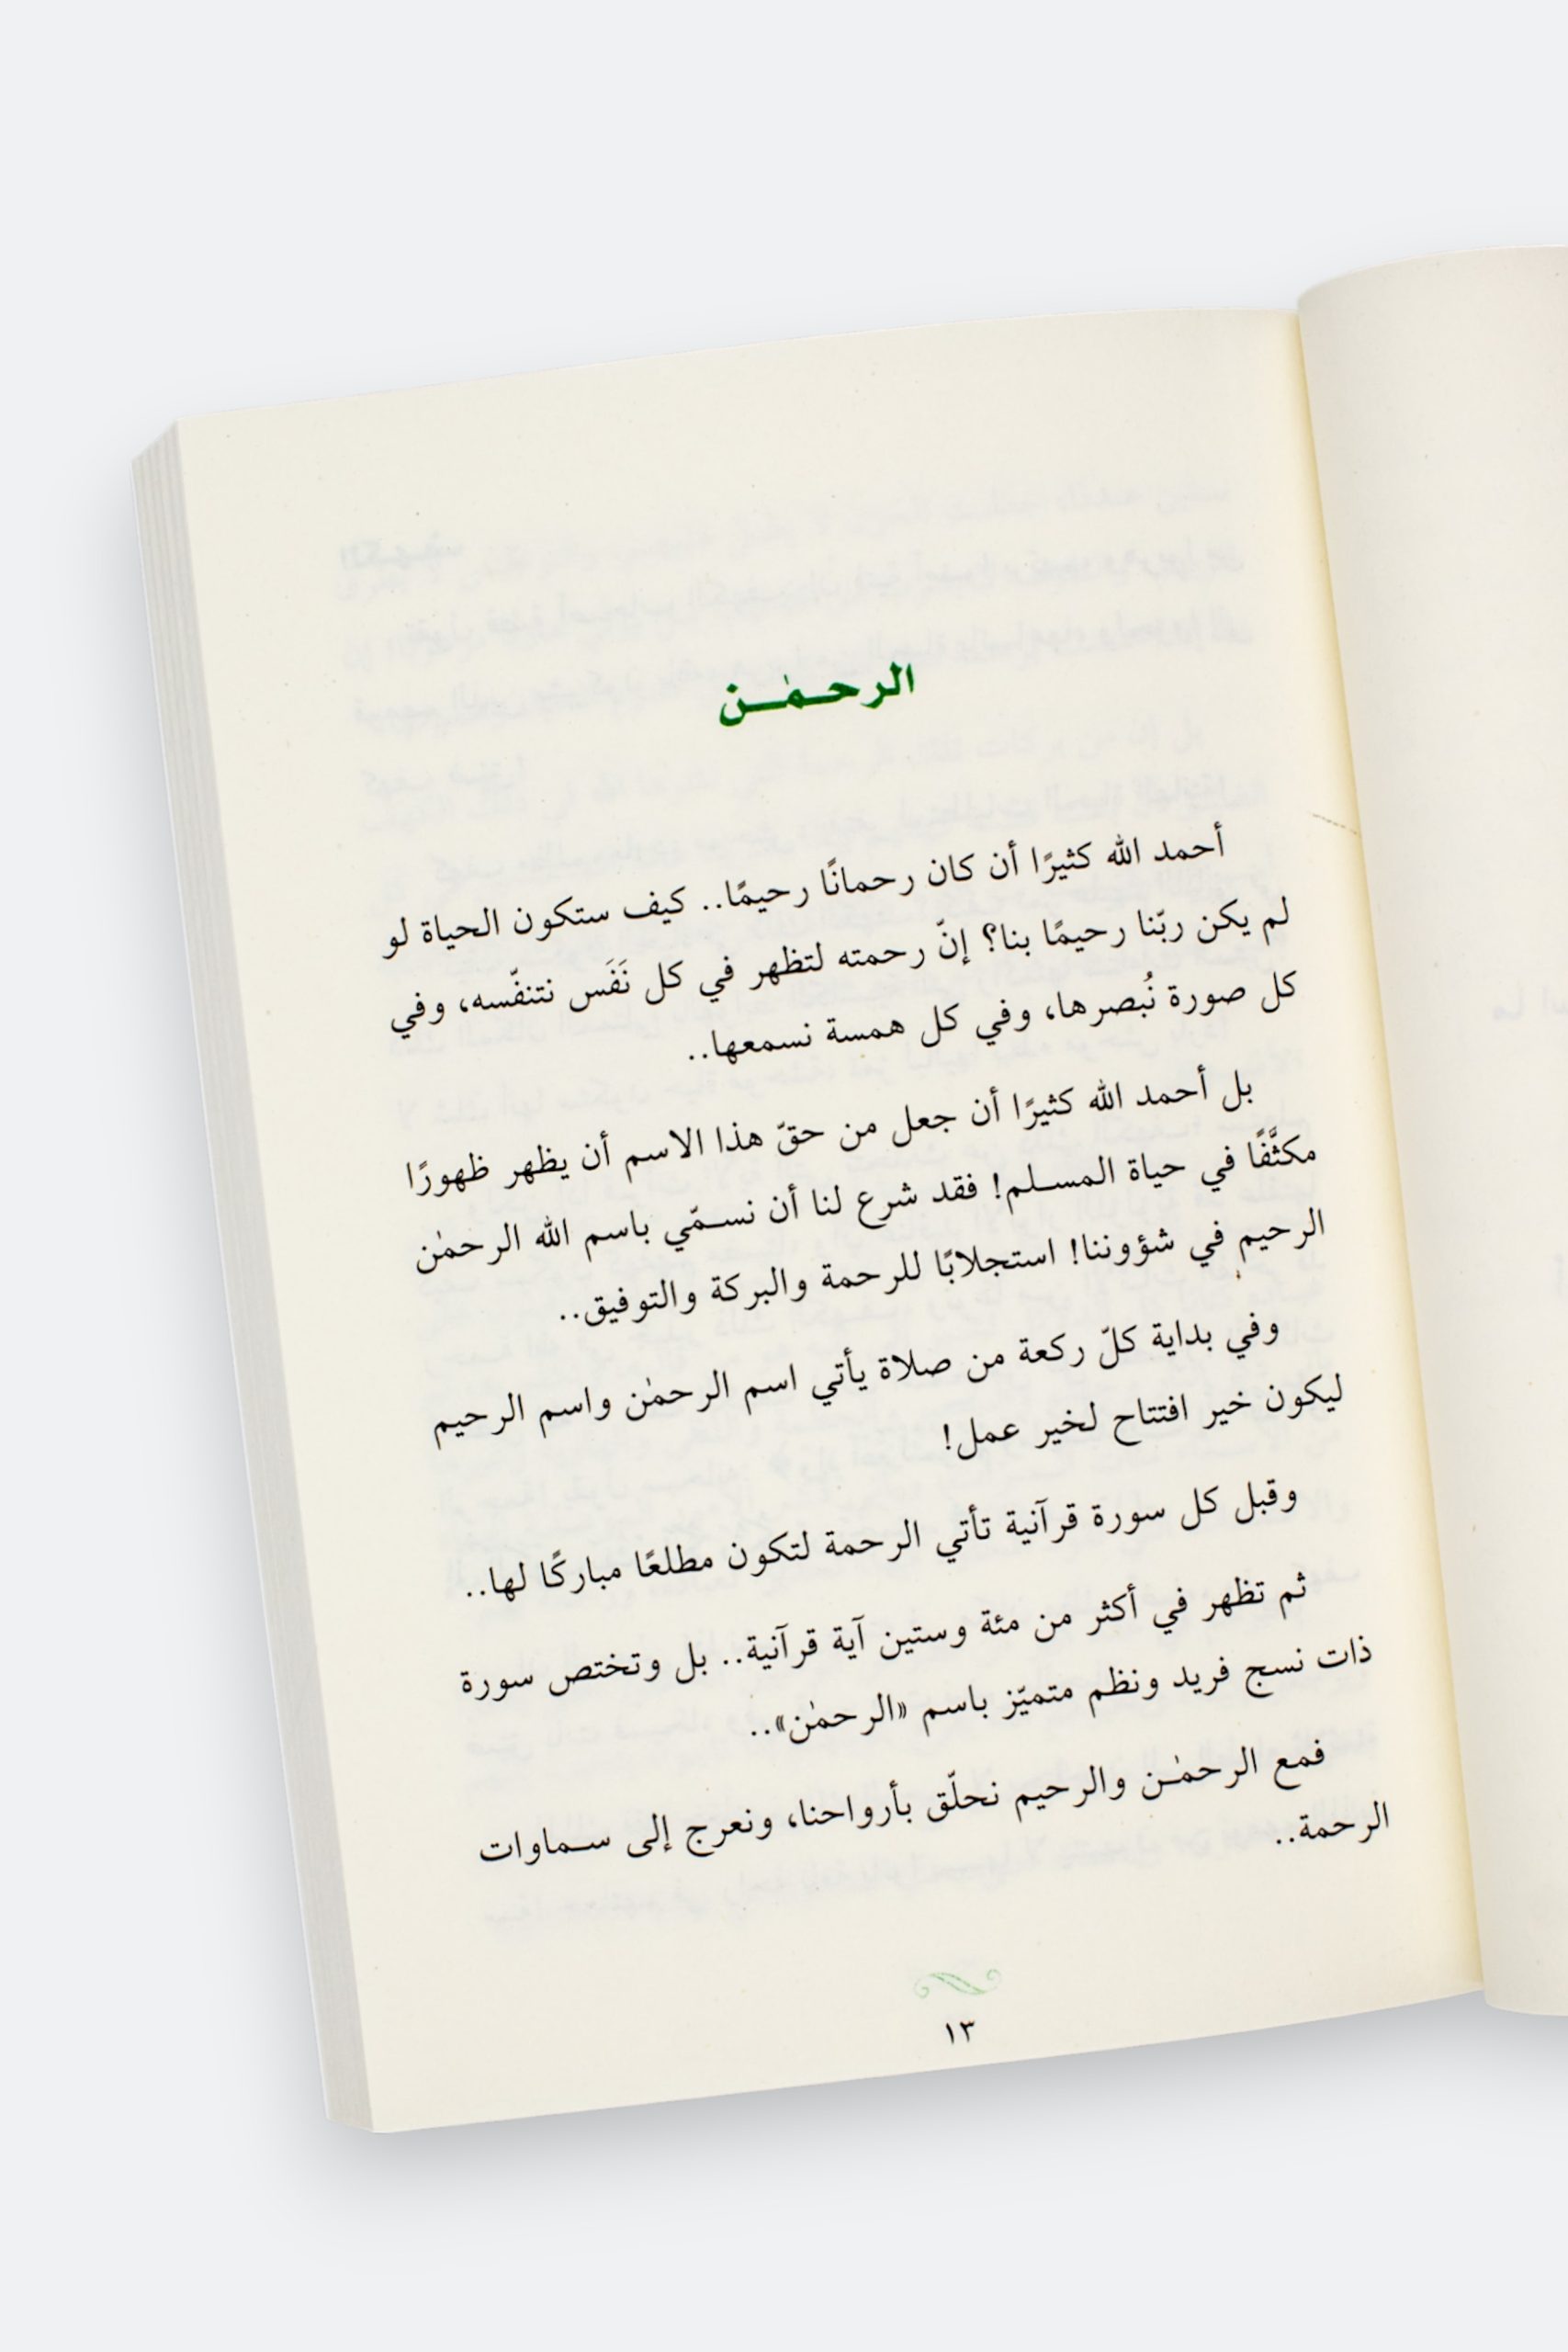 الرحمٰن
أحمد الله كثيرًا أن كان رحمانًا رحيمًا.. كيف ستكون الحياة لو
لم يكن ربّنا رحيمًا بنا؟ إنّ رحمته لتظهر في كل نَفَس نتنفّسه، وفي
كل صورة نُبصرها، وفي كل همسة نسمعها..
بل أحمد الله كثيرًا أن جعل من حقّ هذا الاسم أن يظهر ظهورًا
مكثَّفًا في حياة المسلم! فقد شرع لنا أن نسمّي باسم الله الرحمٰن
الرحيم في شؤوننا! استجلابًا للرحمة والبركة والتوفيق..
وفي بداية كلّ ركعة من صلاة يأتي اسم الرحمٰن واسم الرحيم
ليكون خير افتتاح لخير عمل!
وقبل كل سورة قرآنية تأتي الرحمة لتكون مطلعًا مباركًا لها..
ثم تظهر في أكثر من مئة وستين آية قرآنية.. بل وتختص سورة
ذات نسج فريد ونظم متميّز باسم «الرحمٰن»..
فمع الرحمٰن والرحيم نحلّق بأرواحنا، ونعرج إلى سماوات
الرحمة..
١٣